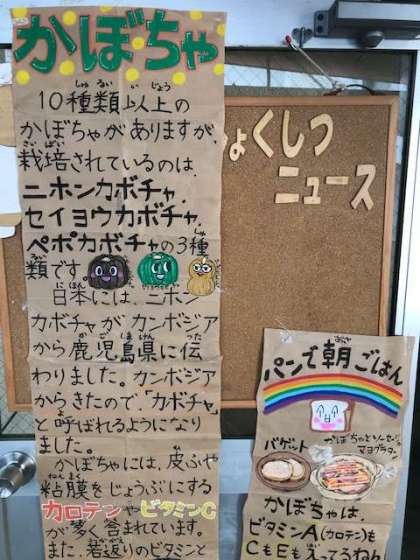 かぼちゃ
10種類以上の
かぼちゃがありますが、
栽培されているのは、
ニホンカボチャ、
セイヨウカボチャ、
ペポカボチャの3種
類です。
日本には、ニホン
カボチャがカンボジア
から鹿児島県に伝
わりました。カンボジア
からきたので「カボチャ」
と呼ばれるようになり
ました。
かぼちゃには、皮ふや
粘膜をじょうぶにする
カロテンやビタミンC
が多く含まれています。
また、若返りのビタミンと
ょくしつ
ニュース
パンで朝ごはん
バゲット
かぼちゃとソーセージ
マヨグラタン
かぼちゃは、
ビタミンA(カロテン)も
CもEも入ってるねん